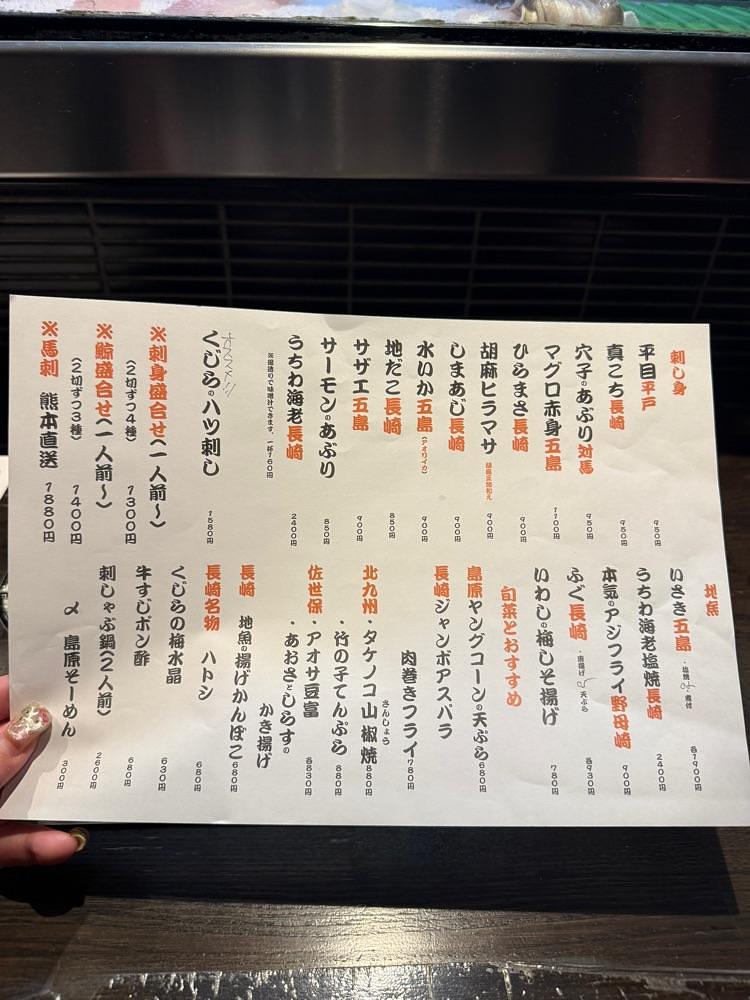 刺し身
平目平戸 950円
真こち長崎 950円
穴子のあぶり対馬 950円
マグロ赤身五島 1100円
ひらまさ長崎 900円
胡麻ヒラマサ 胡麻醤油和え 900円
しまあじ長崎 900円
水いか五島(アオリイカ) 900円
地だこ長崎 850円
サザエ五島 900円
サーモンのあぶり 850円
うちわ海老長崎 2400円
※湯造りで味噌汁できます。一杯160円
オススメ!!
くじらのハツ刺し 1580円
※刺身盛合せ(一人前〜)
(2切ずつ4種) 1300円
※鯨盛合せ(一人前〜)
(2切ずつ3種) 1400円
※馬刺 熊本直送 1880円
地魚
いさき五島・塩焼 or・煮付 各1900円
うちわ海老塩焼長崎 2400円
本気のアジフライ野母崎 900円
ふぐ長崎・唐揚げ or 天ぷら 各930円
いわしの梅しそ揚げ 780円
旬菜とおすすめ
島原ヤングコーンの天ぷら 680円
長崎ジャンボアスパラ
肉巻きフライ 780円
さんしょう
北九州・タケノコ山椒焼 880円
・竹の子てんぷら 880円
佐世保・アオサ豆富 各830円
・あおさとしらすの
かき揚げ
長崎 地魚の揚げかんぼこ 680円
長崎名物 ハトシ 680円
くじらの梅水晶 630円
牛すじポン酢 680円
刺しゃぶ鍋(2人前) 2600円
〆 島原そーめん 300円